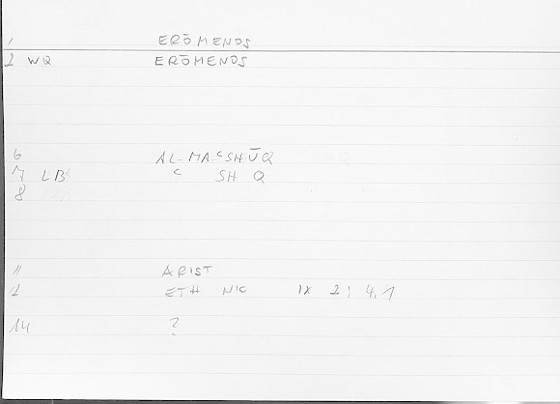 1 ERŌMENOS
2 WQ ERŌMENOS
6 AL-MAᶜSHŪQ
7 LB ᶜ SH Q
8
11 ARIST
2 ETH NIC IX 2; 4,1
14 ?